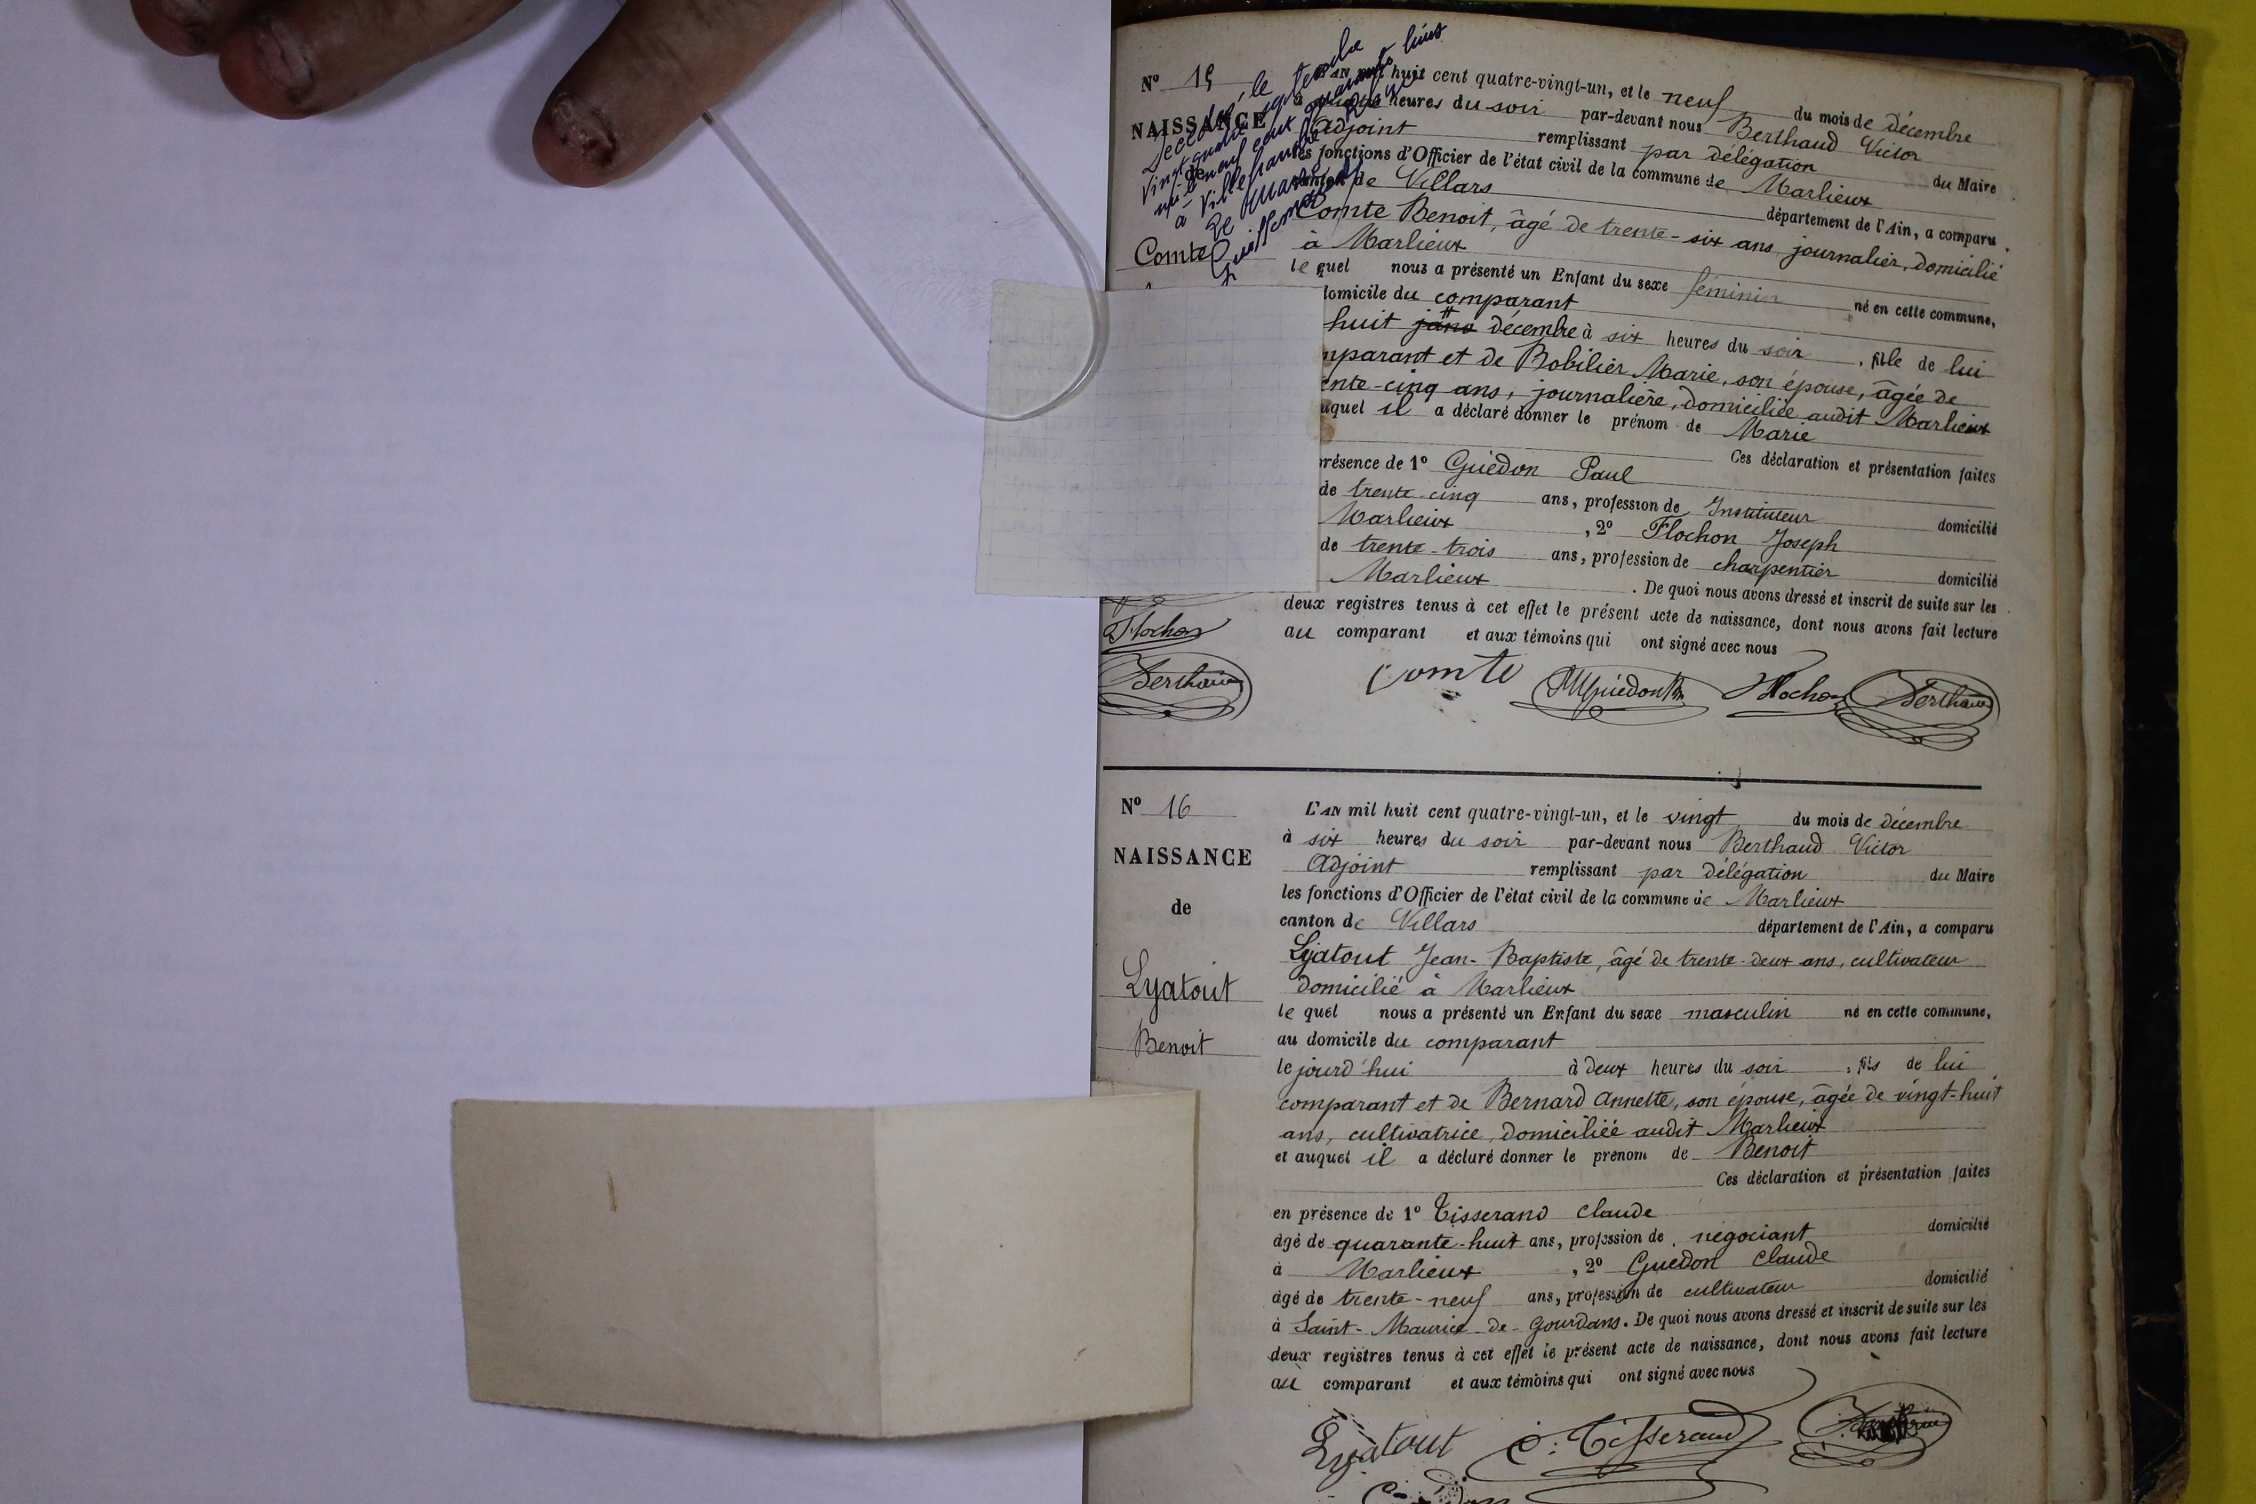 Nº 15
NAISSANCE
de
Décédée, le
vingt quatre septembre
mil neuf cent quarante huit
à Villefranche
Le Maire
Comte
L'AN mil huit cent quatre-vingt-un, et le neuf du mois de décembre
à heures du soir par-devant nous Berthaud Victor
Adjoint remplissant par délégation du Maire
les fonctions d'Officier de l'état civil de la commune de Marlieux
canton de Villars département de l'Ain, a comparu
Comte Benoit, âgé de trente-six ans, journalier, domicilié
à Marlieux
le quel nous a présenté un Enfant du sexe féminin né en cette commune,
domicile du comparant
huit décembre à six heures du soir, fille de lui
mparant et de Bobilier Marie, son épouse, âgée de
ente-cinq ans, journalière, domiciliée audit Marlieux
uquel il a déclaré donner le prénom de Marie
Ces déclaration et présentation faites
présence de 1º Guédon Paul
de trente-cinq ans, profession de Instituteur domicilié
Marlieux, 2º Flochon Joseph
de trente-trois ans, profession de charpentier domicilié
Marlieux. De quoi nous avons dressé et inscrit de suite sur les
deux registres tenus à cet effet le présent acte de naissance, dont nous avons fait lecture
au comparant et aux témoins qui ont signé avec nous
Flochon
Berthaud
Comte Guédon Flochon Berthaud
Nº 16
NAISSANCE
de
Lyatout
Benoit
L'AN mil huit cent quatre-vingt-un, et le vingt du mois de décembre
à six heures du soir par-devant nous Berthaud Victor
Adjoint remplissant par délégation du Maire
les fonctions d'Officier de l'état civil de la commune de Marlieux
canton de Villars département de l'Ain, a comparu
Lyatout Jean-Baptiste, âgé de trente-deux ans, cultivateur
domicilié à Marlieux
le quel nous a présenté un Enfant du sexe masculin né en cette commune,
au domicile du comparant
le jourd'hui à deux heures du soir, fils de lui
comparant et de Bernard Annette, son épouse, âgée de vingt-huit
ans, cultivatrice, domiciliée audit Marlieux
et auquel il a déclaré donner le prénom de Benoit
Ces déclaration et présentation faites
en présence de 1º Tisserand Claude
âgé de quarante-huit ans, profession de négociant domicilié
à Marlieux, 2º Guédon Claude
âgé de trente-neuf ans, profession de cultivateur domicilié
à Saint-Maurice-de-Gourdans. De quoi nous avons dressé et inscrit de suite sur les
deux registres tenus à cet effet le présent acte de naissance, dont nous avons fait lecture
au comparant et aux témoins qui ont signé avec nous
Lyatout C. Tisserand